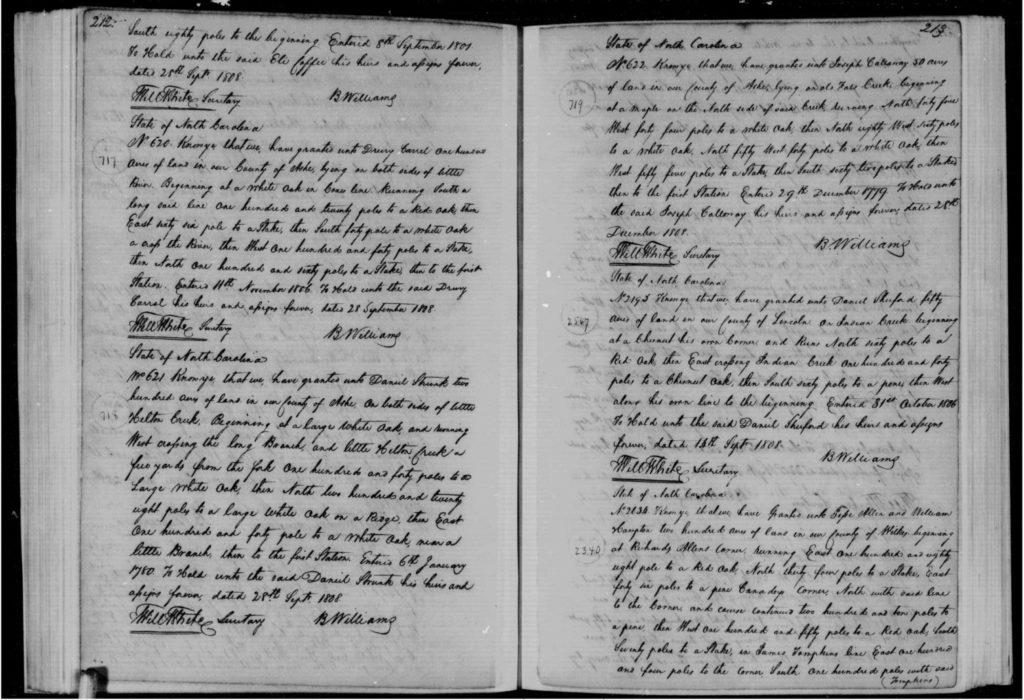 212.
South eighty poles to the beginning Entered 8th September 1801
To Hold unto the said Eli Coffee his heirs and assigns forever,
dated 28th Sept. 1808.
Will White Secretary B Williams
State of North Carolina
717
No 620. Know ye that we, have granted unto Drury Carrel One hundred
acres of land in our County of Ashe, lying on both sides of little
River. Beginning at a White Oak in line Running South a
long said line One hundred and twenty poles to a Red Oak, then
East sixty six pole to a Stake, then South forty pole to a white Oak
a cross the River, then West One hundred and forty poles to a Stake,
then North One hundred and sixty poles to a Stake, then to the first
Station. Entered 11th November 1806. To Hold unto the said Drury
Carrol his heirs and assigns forever, dated 28 September 1808
Will White Secretary B Williams
State of North Carolina
718
No 621 Know ye, that we, have granted unto Daniel Strunk two
hundred acres of land in our County of Ashe. On both sides of little
Helton Creek, Beginning at a large White Oak, and running
West crossing the long Branch, and little Helton Creek a
few yards from the fork One hundred and forty poles to a
Large White Oak, then North two hundred and twenty
eight poles to a large White Oak on a Ridge, then East
One hundred and forty pole to a White Oak, near a
little Branch, then to the first Station. Entered 6th January
1780. To Hold unto the said Daniel Strunk his heirs and
assigns forever, dated 28th Sept. 1808
Will White Secretary B Williams
213.
State of North Carolina
719
No 622. Know ye, that we, have granted unto Joseph Calloway 50 acres
of land in our County of Ashe, lying on old Creek, beginning
at a Maple on the North side of said Creek Running North forty five
West forty four poles to a White Oak, then North eighty West sixty poles
to a White Oak, North fifty West forty poles to a White Oak, then
West fifty five poles to a Stake, then South sixty two poles to a Stake
then to the first Station Entered 29th December 1779 To Hold unto
the said Joseph Calloway his heirs and assigns forever, dated 28th
December 1808.
Will White Secretary B Williams
State of North Carolina
No 2193 Know ye that we, have granted unto Daniel Shuford fifty
acres of land in our County of Lincoln On Indian Creek beginning
at a Chesnut his own Corner, and Runs North sixty poles to a
Red Oak, then East crossing Indian Creek One hundred and forty
poles to a Chesnut Oak, then South sixty poles to a pine, then West
along his own line to the beginning. Entered 31st October 1806
To Hold unto the said Daniel Shuford his heirs and assigns
forever, dated 14th Sept. 1808.
Will White Secretary B Williams
State of North Carolina
2340
No 2034 Know ye, that we, have Granted unto Allen and William
Hampton two hundred acres of land in our County of Wilkes, beginning
at Richards Allens Corner, running East One hundred and eighty
eight pole to a Red Oak, North thirty four poles to a Stake, East
forty six poles to a pine Corner, North with said line
to the Corner and course continued two hundred and ten poles to
a pine, then West One hundred and fifty poles to a Red Oak, South
Seventy poles to a Stake, in James Tompkins line East One hundred
and four poles to the corner South One hundred poles with said
(Tompkins)